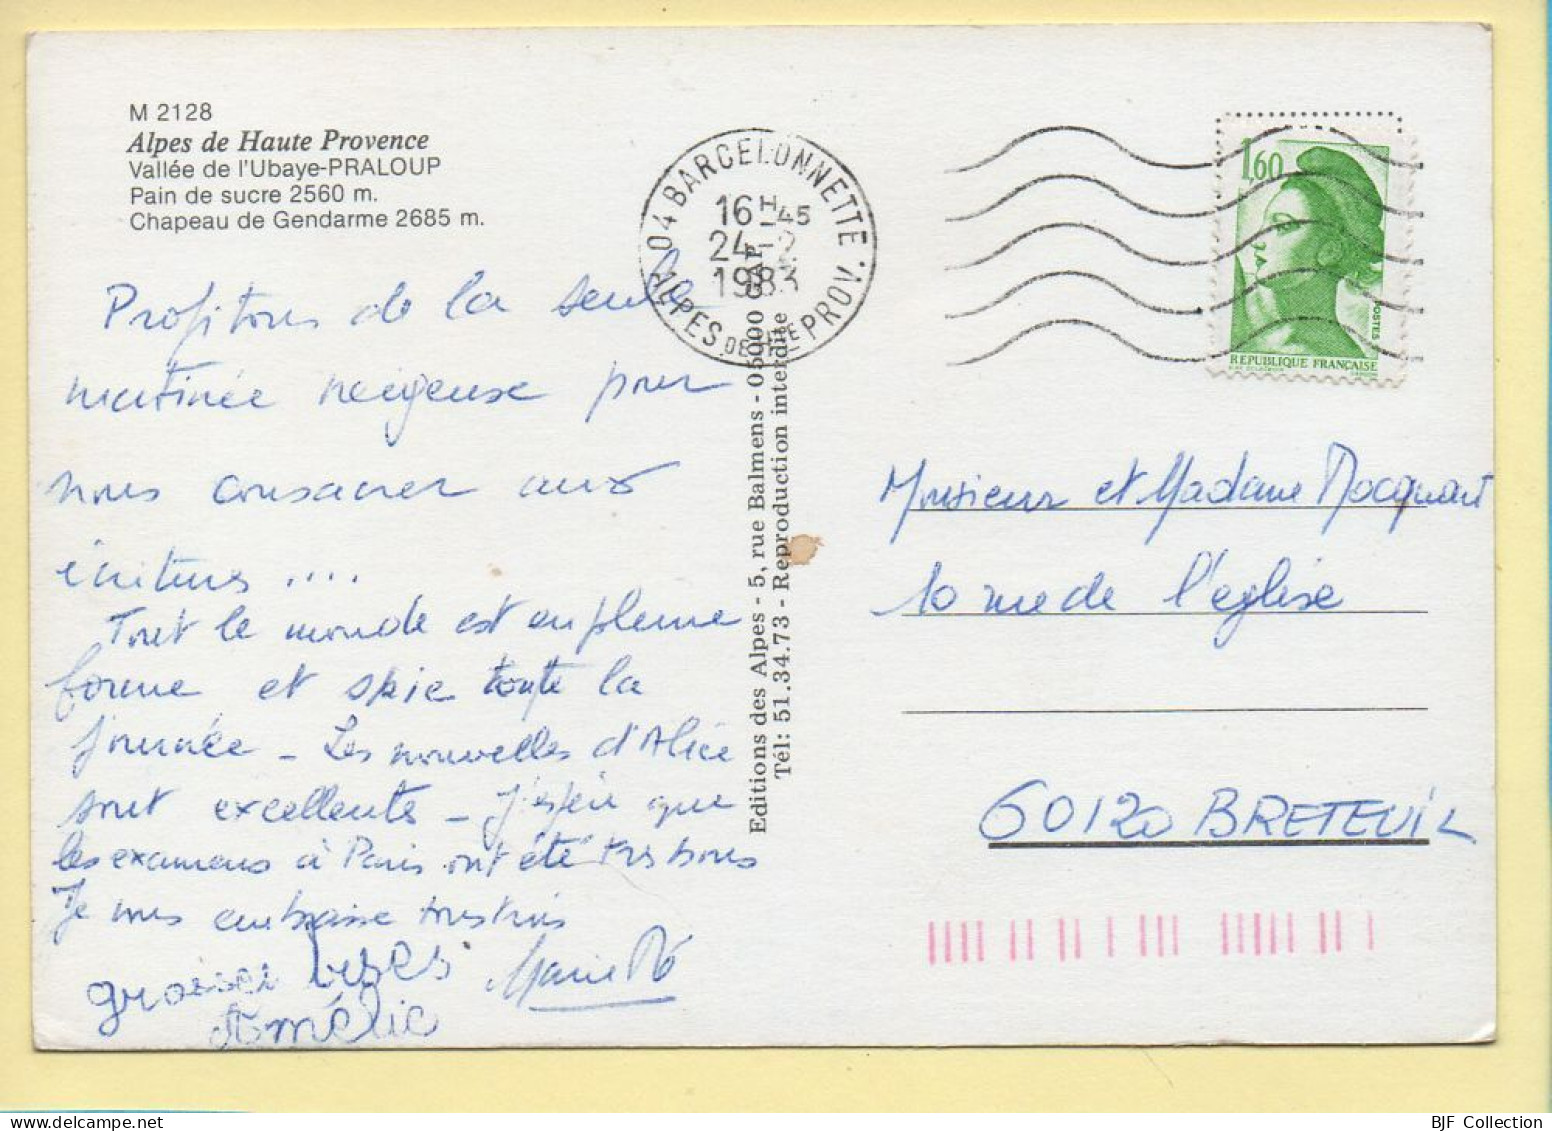 M 2128
Alpes de Haute Provence
Vallée de l'Ubaye-PRALOUP
Pain de sucre 2560 m.
Chapeau de Gendarme 2685 m.
Profitons de la seule
matinée neigeuse pour
nous consacrer aux
écritures ....
Tout le monde est en pleine
forme et skie toute la
journée - Les nouvelles d'Alice
sont excellentes - J'espère que
les examens à Paris ont été très bons
Je vous embrasse très fort
grosses bises
Marie
Amélie
Editions des Alpes - 5, rue Balmens - 05000 GAP
Tél: 51.34.73 - Reproduction interdite
04 BARCELONNETTE
16H45
24-2
1983
ALPES DE HTE PROV.
1,60
POSTES
REPUBLIQUE FRANÇAISE
Monsieur et Madame Mocquart
10 rue de l'église
60120 BRETEUIL
BJF Collection